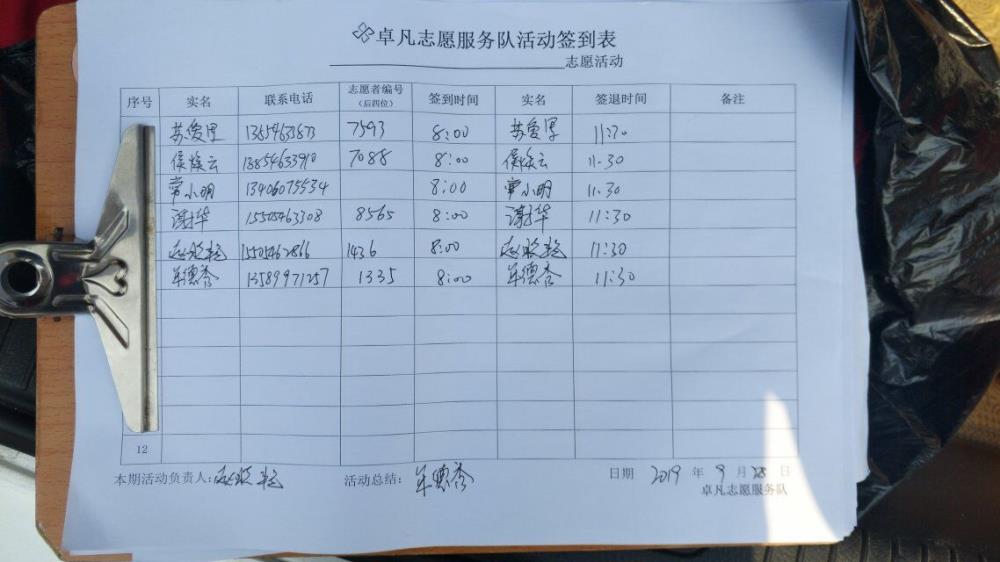 卓凡志愿服务队活动签到表
志愿活动
序号 实名 联系电话 志愿者编号 签到时间 实名 签退时间 备注
(后四位)
苏爱厚 7593 8:00 苏爱厚 11:30
侯焕云 13854633910 7088 8:00 侯焕云 11.30
常小明 13406075534 8:00 常小明 11.30
谢华 15505463308 8565 8:00 谢华 11:30
1436 8:00 11:30
牟德香 13589971257 1335 8:00 牟德香 11:30
12
本期活动负责人: 活动总结: 牟德香 日期 2019 年 9 月 28 日
卓凡志愿服务队